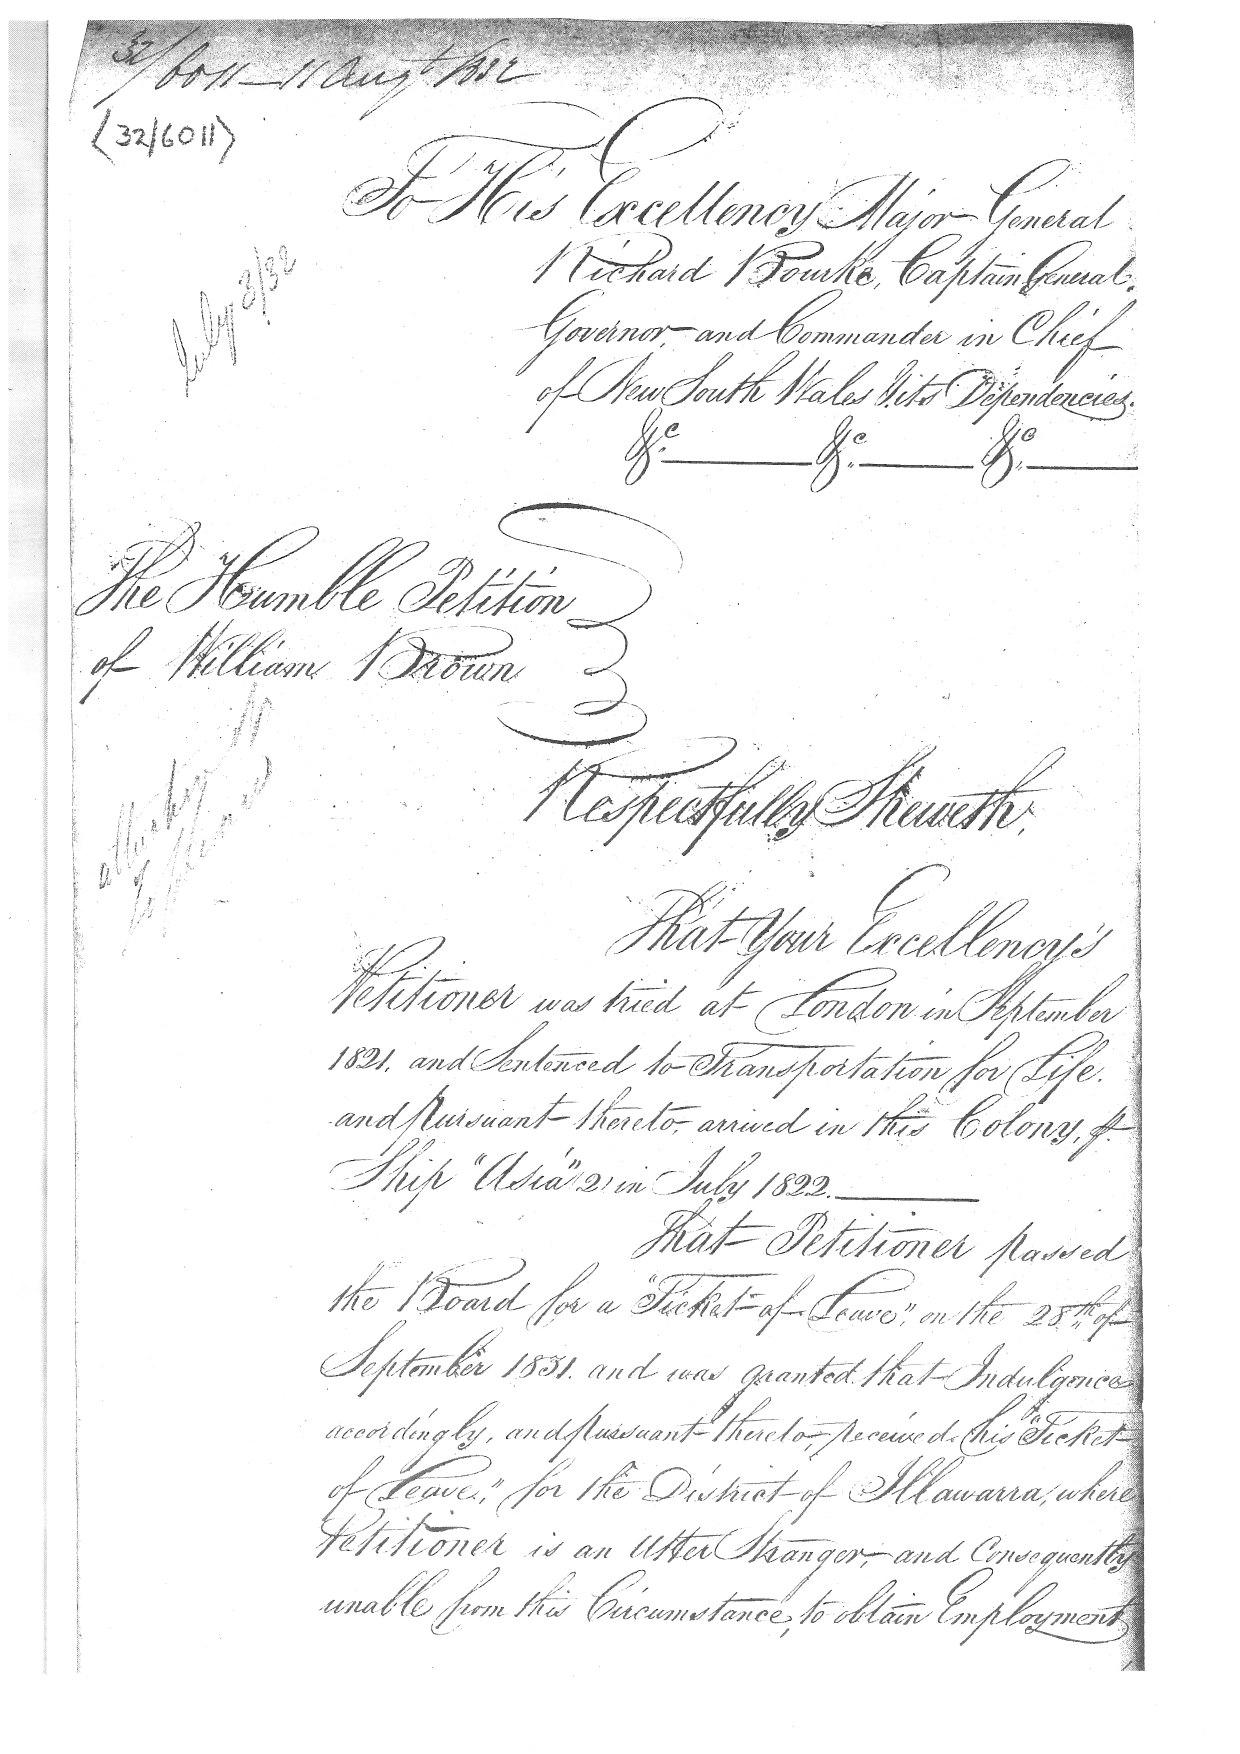 32/6011 - 11 Augt 1832
(32/6011)
To His Excellency Major General
Richard Bourke, Captain General,
Governor, and Commander in Chief
of New South Wales & its Dependencies.
&c. &c. &c.
July 3/32
The Humble Petition
of William Brown
Respectfully Sheweth,
That Your Excellency's
Petitioner was tried at London in September
1821, and Sentenced to Transportation for Life.
and pursuant thereto, arrived in this Colony, p.
Ship "Asia" 2, in July 1822.
That Petitioner passed
the Board for a "Ticket of Leave", on the 28th of
September 1831. and was granted that Indulgence
accordingly, and pursuant thereto, received his "Ticket
of Leave," for the District of Illawarra, where
Petitioner is an Utter Stranger, and Consequently
unable from this Circumstance, to obtain Employment